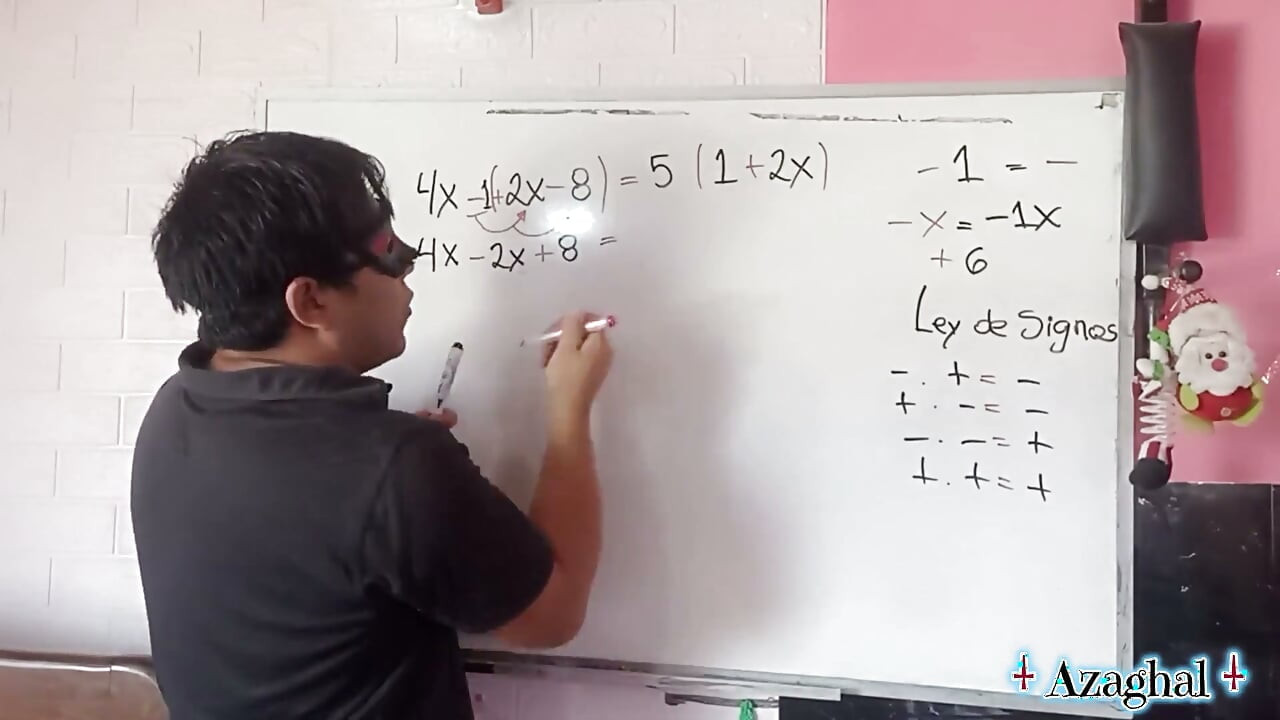 4x -1(+2x-8) = 5 (1+2x)
4x - 2x + 8 =
- 1 = -
- x = -1x
+ 6
Ley de Signos
- . + = -
+ . - = -
- . - = +
+ . + = +
Azaghal